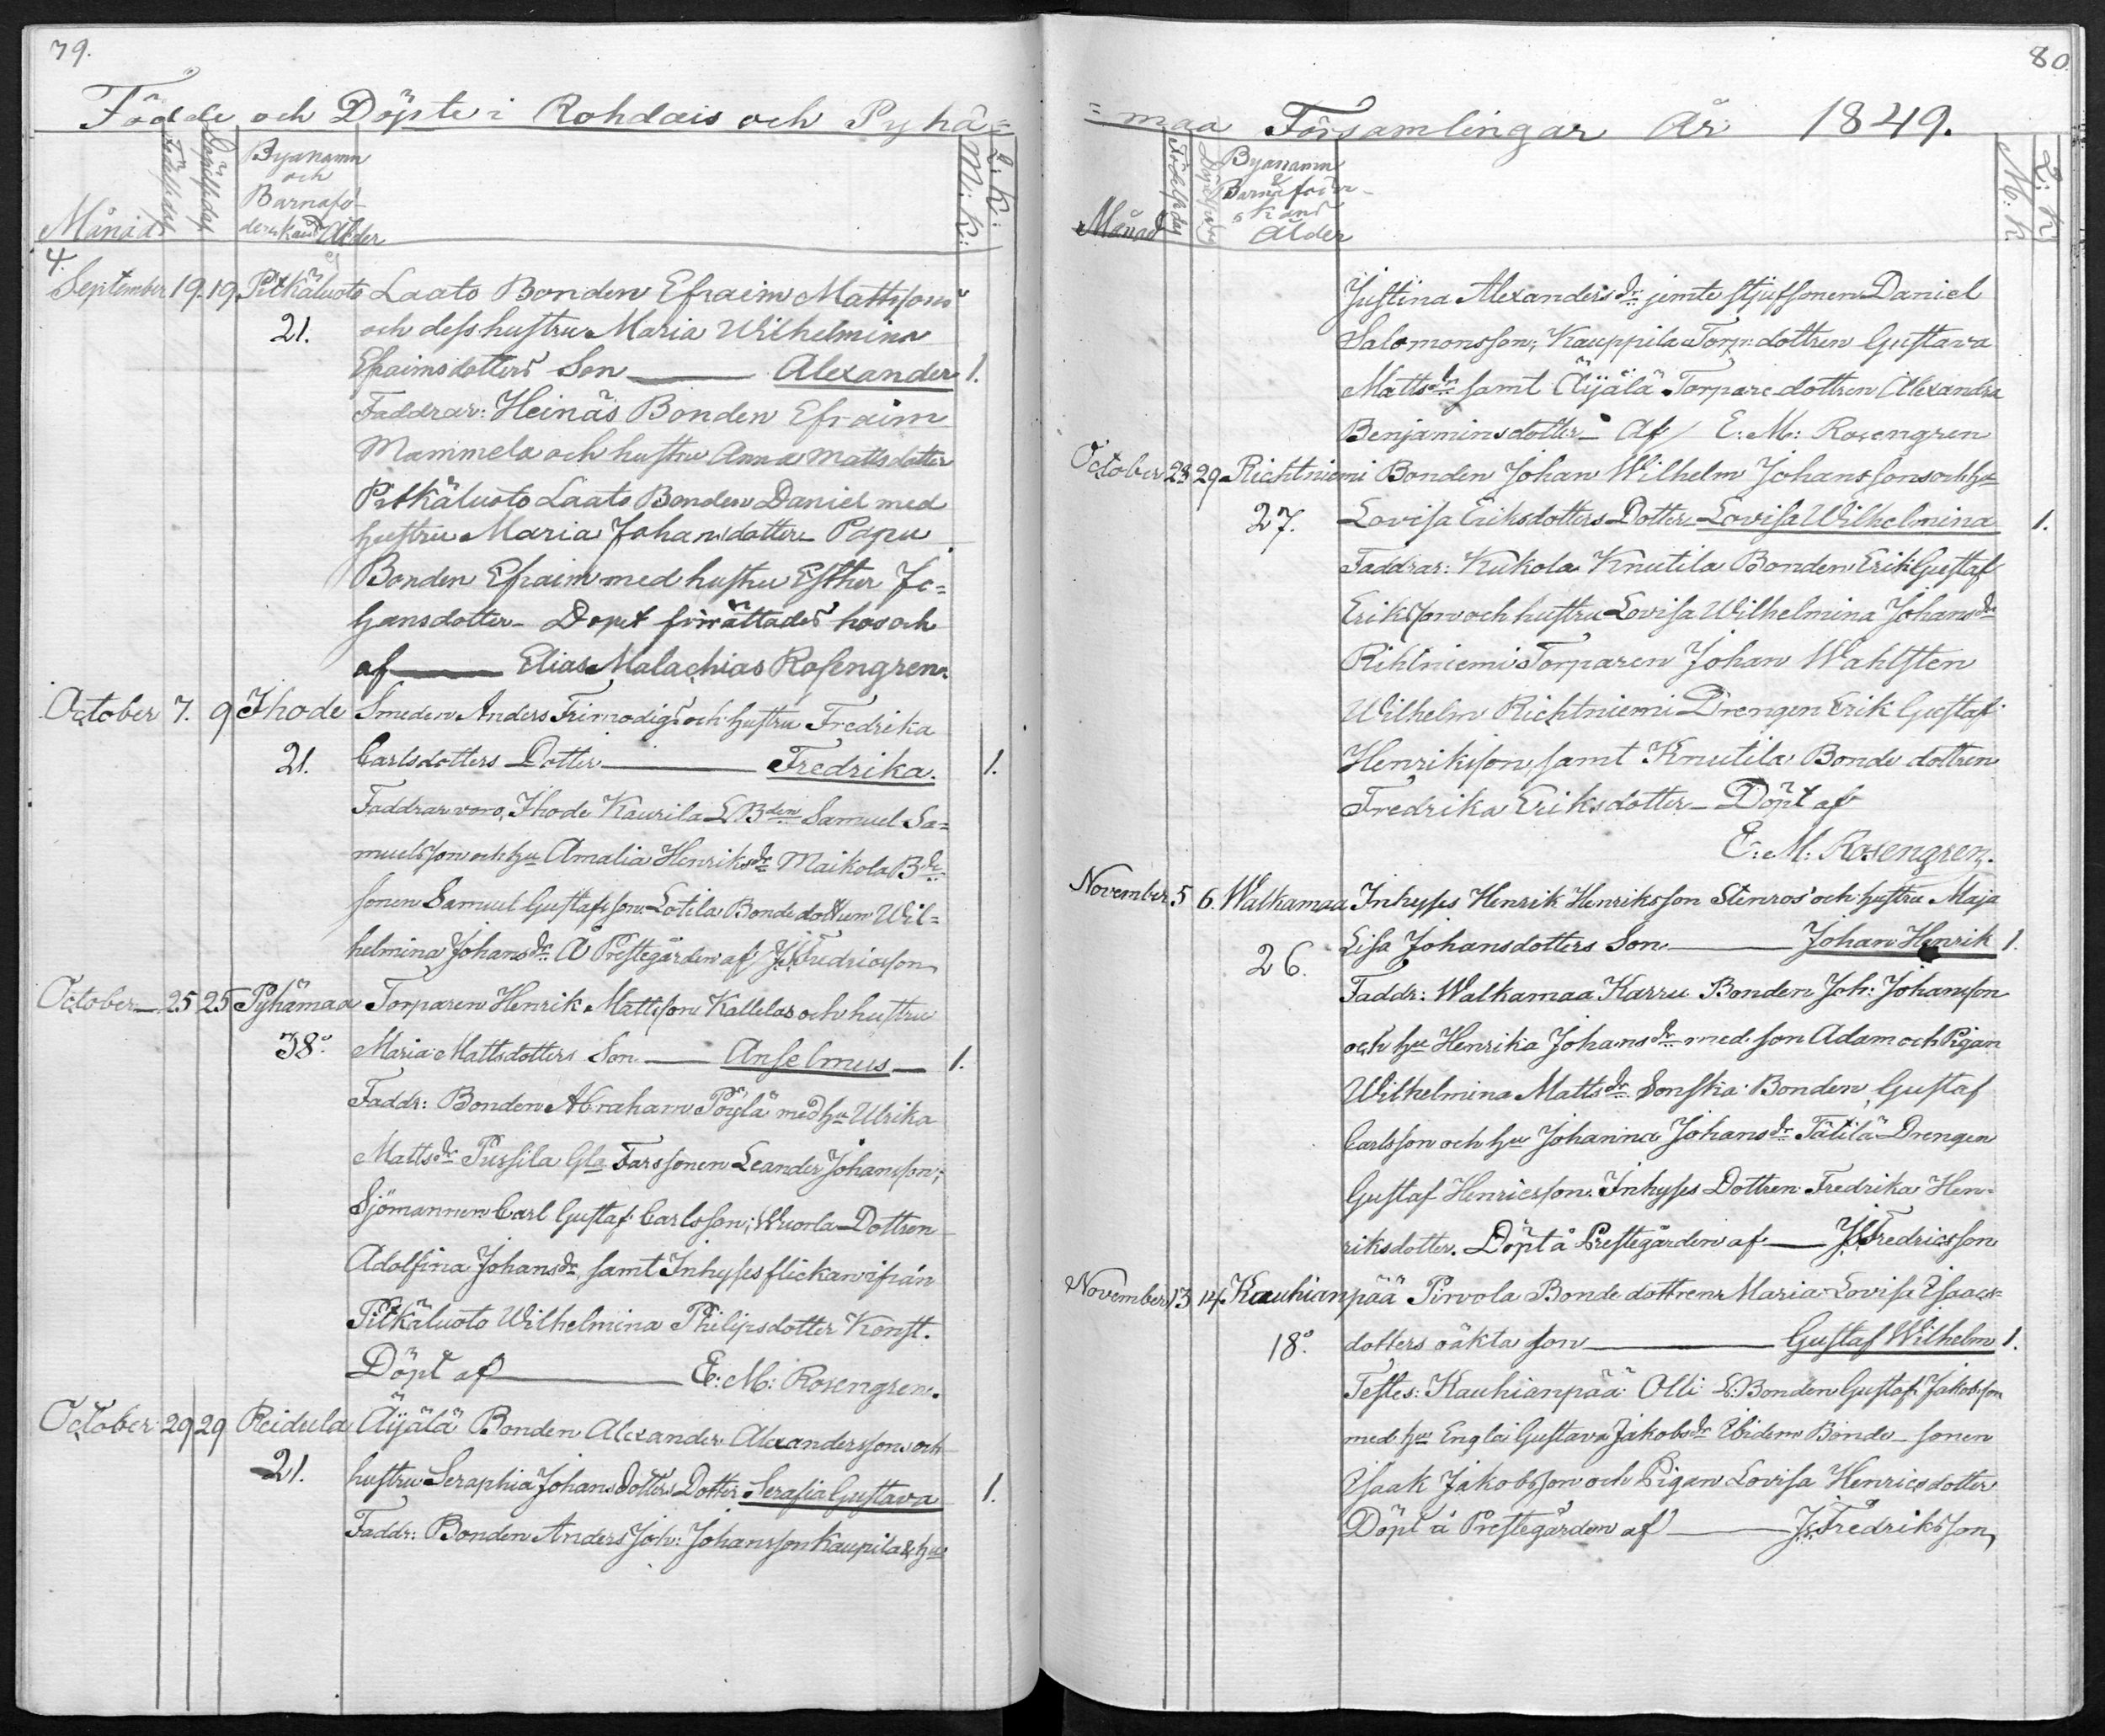 79.
Födde och Döpte i Rohdais och Pyhä=
Månad
Födelsedag
Döpelsedag
Byanamn
och
Barnafö-
derskans Ålder
M: K:
Q: K:
4.
September 19. 19. Pitkäluoto Laato Bonden Efraim Mattssons
21. och dess hustru Maria Wilhelmina
Efraimsdotters Son — Alexander 1.
Faddrar: Heinäs Bonden Efraim
Mammela och hustru Anna Mattsdotter
Pitkäluoto Laato Bonden Daniel med
hustru Maria Johansdotter Papu
Bonden Efraim med hustru Esther Jo=
hansdotter – Dopet förrättades hos och
af — Elias Malachias Rosengren.
October 7. 9 Ihode Smeden Anders Frimodigs och hustru Fredrika
21. Carlsdotters Dotter — Fredrika. 1.
Faddrar voro, Ihode Kaurila L.Bden Samuel Sa=
muelsson och hu Amalia Henriksdr Maikola Bde
sonen Samuel Gustafsson Lotila Bondedottren Wil=
helmina Johansdr Å Prestegården af J. Fredricsson
October 25 25 Pyhämaa Torparen Henrik Mattsson Kallelas och hustru
38. Maria Mattsdotters Son — Anselmus — 1.
Faddr: Bonden Abraham Pöylä med hu Ulrika
Mattsdr Pursila Gla Farssonen Leander Johansson;
Sjömannen Carl Gustaf Carlsson; Wuorla Dottren
Adolfina Johansdr, samt Inhyses flickan ifrån
Pitkäluoto Wilhelmina Philipsdotter Konst.
Döpt af — E: M: Rosengren.
October 29 29 Reidula Äyälä Bonden Alexander Alexandersson och
21. hustru Seraphia Johansdotters Dotter Serafia Gustava 1.
Faddr: Bonden Anders Joh: Johansson Kaupila & hu
80.
=maa Församlingar År 1849.
Månad
Födelsedag
Byanamn
&
Barnaföder-
skans
Ålder
M: K.
Q: K
Justina Alexandersdr jemte styfsonen Daniel
Salomonsson; Kauppila Torp: dottren Gustava
Mattsdr samt Äijälä Torpare dottren Alexandra
Benjaminsdotter – Af E: M: Rosengren
October 28 29 Richtniemi Bonden Johan Wilhelm Johanssons och hu
27. Lovisa Eriksdotters Dotter Lovisa Wilhelmina 1.
Faddrar: Kukola Knutila Bonden Erik Gustaf
Eriksson och hustru Lovisa Wilhelmina Johansdr
Rihtniemi Torparen Johan Wahlsten
Wilhelm Richtniemi Drengen Erik Gustaf
Henriksson samt Knutila Bonde dottren
Fredrika Eriksdotter – Döpt af
E: M: Rosengren.
November 5 6. Walkamaa Inhyses Henrik Henriksson Stenros' och hustru Maja
26. Lisa Johansdotters Son — Johan Henrik 1.
Faddr: Walkamaa Karru Bonden Joh: Johansson
och hu Henrika Johansdr med son Adam och Pigan
Wilhelmina Mattsdr Sonska Bonden Gustaf
Carlsson och hu Johanna Johansdr Tätilä Drengen
Gustaf Henricsson. Inhyses Dottren Fredrika Hen-
riksdotter. Döpt å Prestegården af — J. Fredricsson
November 13 14. Kauhianpää Pirvola Bonde dottren Maria Lovisa Isaacs=
18. dotters oäkta son — Gustaf Wilhelm 1.
Testes: Kauhianpää Olli L: Bonden Gustaf Jakobsson
med hu Engla Gustava Jakobsdr Ibidem Bonde sonen
Isaak Jakobsson och Pigan Lovisa Henricsdotter
Döpt å Prestegården af — J. Fredriksson